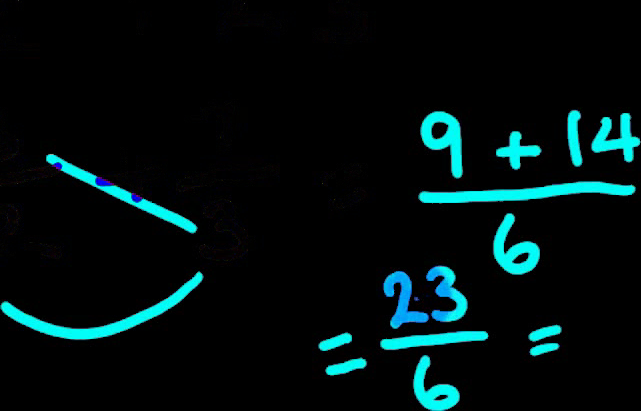 9 + 14
6
= 23 =
6